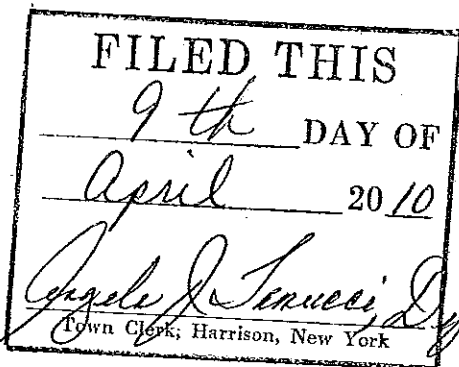 FILED THIS
9th DAY OF
April 2010
Angelo J
Town Clerk, Harrison, New York